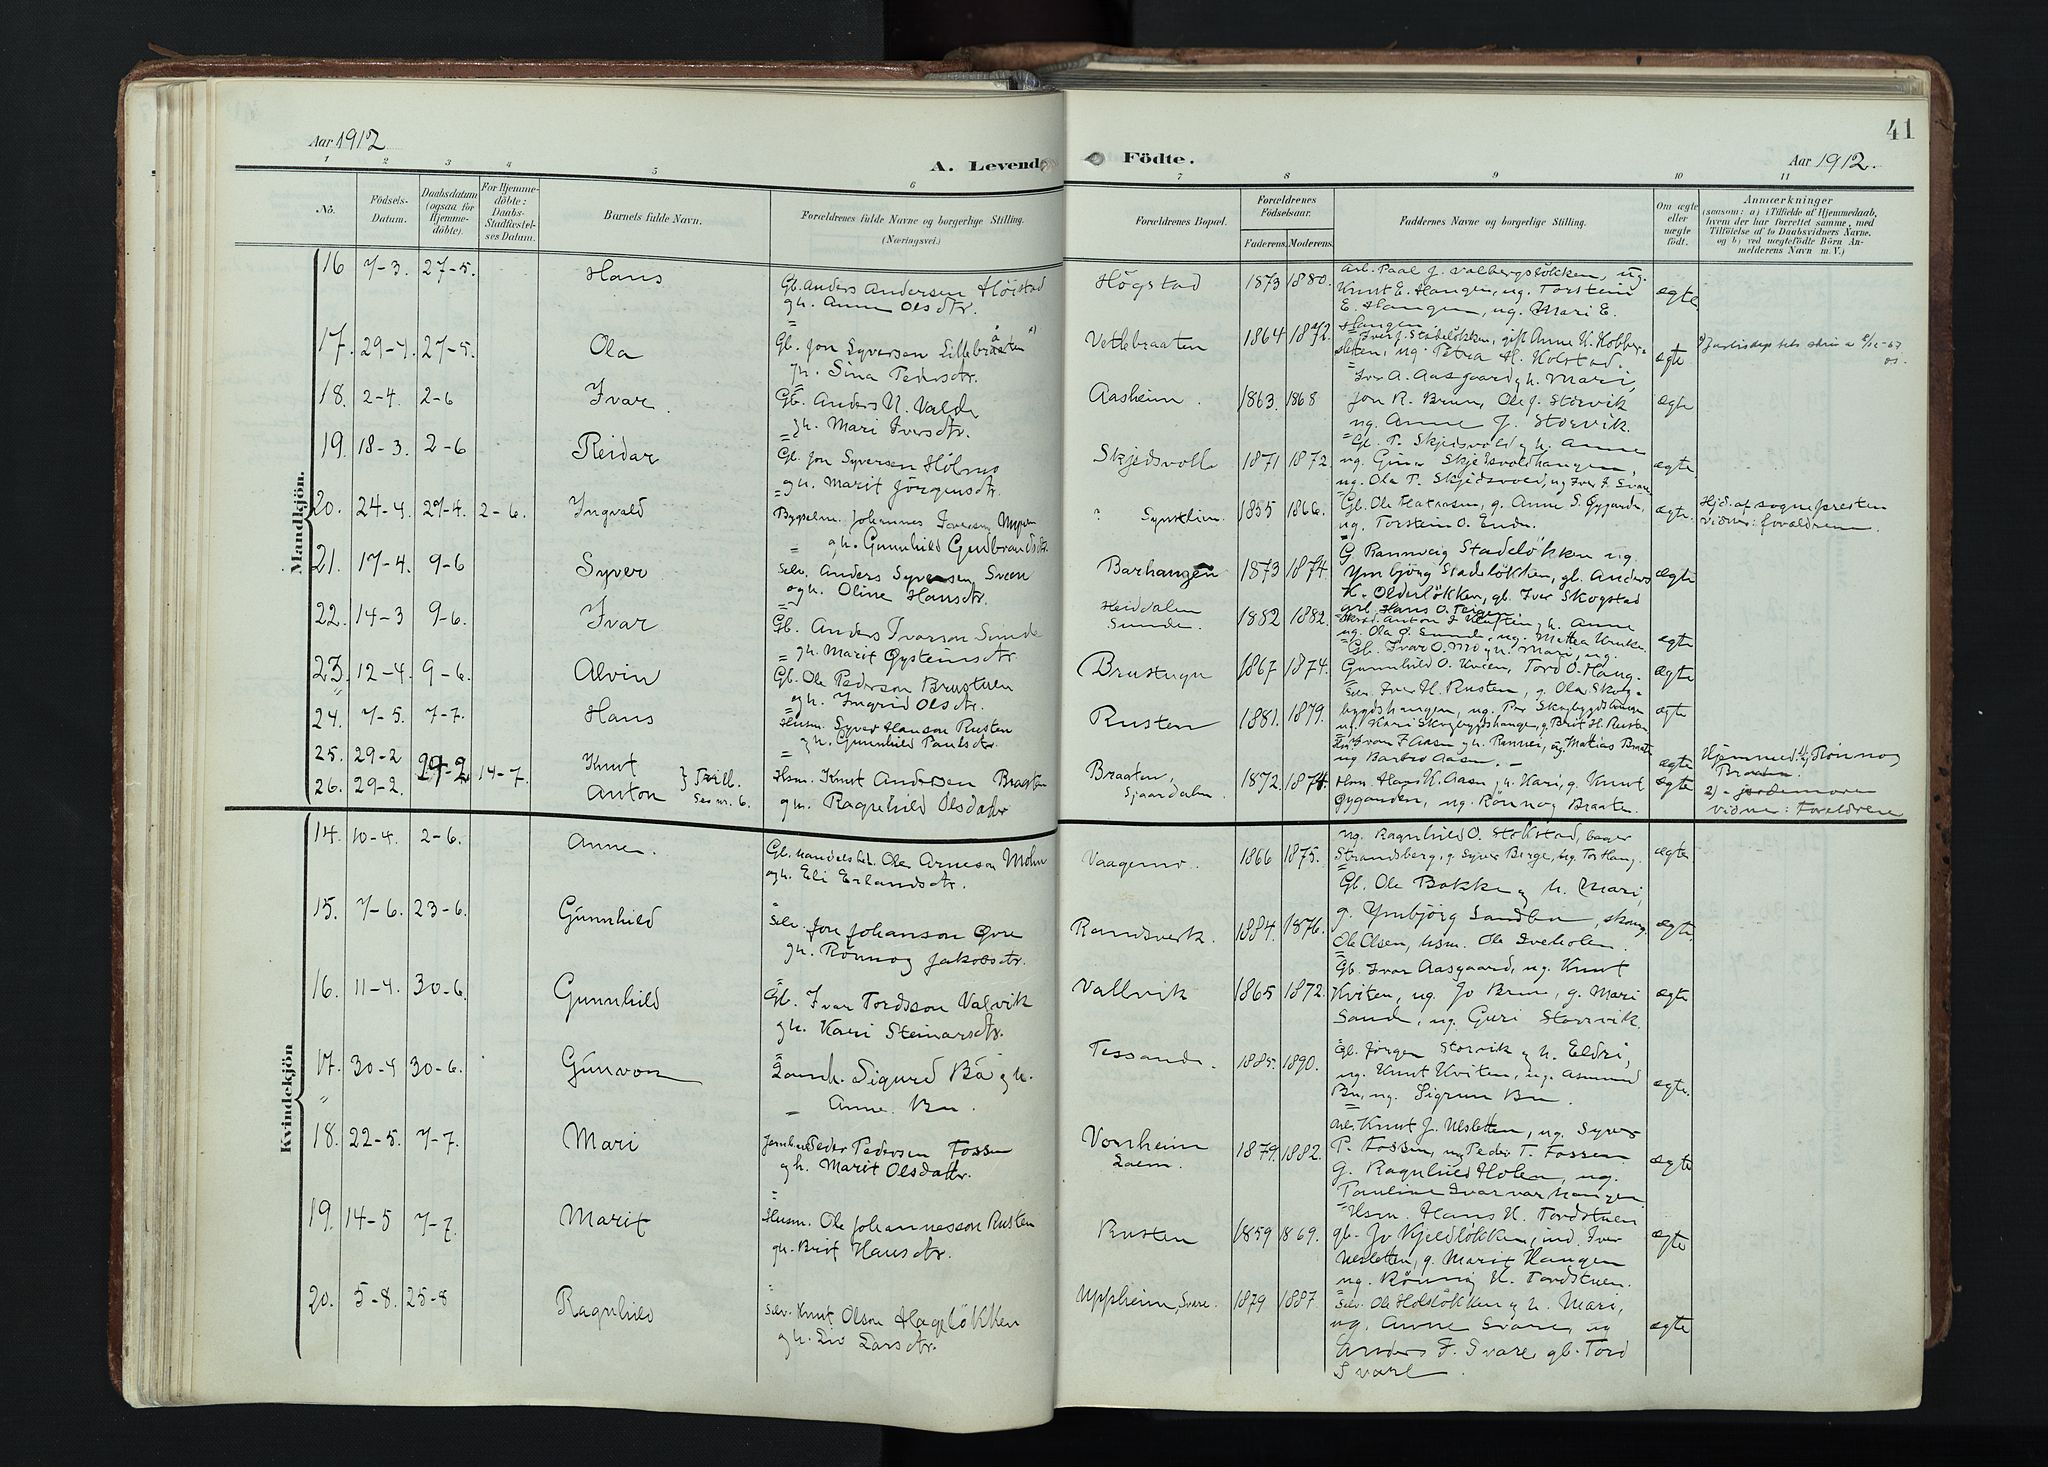 41
Aar 1912
A. Levende Födte.
Aar 1912.
1 2 3 4 5 6 7 8 9 10 11
No.
Födsels-Datum.
Daabsdatum (ogsaa for Hjemme-döbte).
For Hjemme-döbte: Daabs-Stadfæstel-ses Datum.
Barnets fulde Navn.
Forældrenes fulde Navne og borgerlige Stilling.
(Næringsvei.)
Forældrenes Bopæl.
Forældrenes Fødselsaar.
Faderens. Moderens.
Faddernes Navne og borgerlige Stilling.
Om ægte eller uægte födt.
Anmærkninger
(saasom: a) i Tilfælde af Hjemmedaab, hvem der har forrettet samme, med Tilföielse af to Daabsvidners Navne. og b) ved uægtefödte Börn An-melderens Navn m. V.)
Mandkjön.
16 7-3. 27-5. Hans
Gb. Anders Andersen Höistad
gh. Anne Olsdtr.
Högstad 1873 1880.
Knut E. Hangen, ug. Torstein
E. Hangen, ug. Mari E.
Hangen
ægte
17. 29-4. 27-5. Ola
Gb. Jon Syversen Lillebraaten
gh. Sina Pedersdtr.
Vetlebraaten 1864 1872.
ug. Petra H. Holstad.
ægte
18. 2-4. 2-6 Ivar
Gb. Anders N. Valde
gh. Mari Iversdtr.
Aasheim. 1863. 1868
Iver A. Aasgaard gh. Mari,
Jon R. Brun, Ole J. Storvik
ug. Anne J. Storvik.
ægte
19. 18-3. 2-6 Reidar
Gb. Jon Syversen Hölmo
gh. Marit Jörgensdtr.
Skjedsvoll 1871 1872
Gb. P. Skjedsvold gh. Anne
ug. Gina Skjedsvoldhangen,
ug. Ola P. Skjedsvold, ug Iver J. Svare
ægte
20. 24-4. 29-4. 2-6. Ingvald
Johannes Iversen Myren
gh. Gunnhild Gudbrandsdtr.
1855 1866.
g. Anne S. Gyganden,
ug. Torstein O. Enden
ægte.
Hjd. af sognepresten
vidner: foreldrene
21. 17-4. 9-6 Syver
Selv. Anders Syversen Sveen
ogh. Oline Hansdtr.
Barhangen 1873 1874.
G. Rannveig Stadelökken ug.
Ymbjörg Stadelökken, gb. Anders
K. Olderlökken, gb. Iver Skogstad
arb. Hans O. Teigen.
ægte
22. 14-3 9-6. Ivar
Gb. Anders Ivarson Sunde
gh. Marit Öysteinsdtr.
Heiddalen
Sunde. 1882 1882.
ug. Ola Ö. Sunde, ug. Mattea
ægte
23. 12-4. 9-6. Alvin
Gb. Ole Pederson Brustuen
gh. Ingrid Olsdtr.
Brustugu 1867 1874.
Gb. Ivar O. Mo gh. Mari, ug.
Gunnhild O. Kvien, Tord O. Haug.
ægte
24. 7-5. 7-7. Hans
Husm. Syver Hanson Rusten
gh. Gunnhild Paulsdtr.
Rusten 1881. 1879.
Selv. Iver H. Rusten, g. Ola Skog-
bygdshangen, ug. Per Skogbygdshangen
ug. Kari Skogbygdshangen, g. Brit H. Rusten
ægte
25. 29-2 Knut
26. 29-2. 29-2. 14-7. Anton } Tvill.
Se nr. 6.
Hsm. Knut Andersen Braaten
gh. Ragnhild Olsdatter
Braaten,
Sjaardalen. 1872. 1874.
ug Barbro Aasen. –
Hsm. Hans K. Aasen gh. Kari, g. Knut
Gyganden, ug. Rönnog Braaten.
ægte
ægte
Rönnog
Braaten.
2) - jordemoren
vidner: Foreldrene
Kvindekjön
14. 10-4. 2-6. Anne.
Ole Arneson Mohn
ogh. Eli Erlandsdtr.
Vaagemo. 1866 1875.
ug. Ragnhild O. Stokstad, bager
Strandsberg, g. Syver Berge, ug. Tor Haug.
ægte
15. 7-6. 23-6. Gunnhild
Selv. Jon Johanson Övre
gh. Rönnog Jakobsdtr.
Randsverk. 1884. 1876.
Gb. Ole Bakke g h. Mari,
g. Ymbjörg Sandbu, skom.
Ole Olsen, husm. Ole Sveholen.
ægte.
16. 11-4. 30-6. Gunnhild
Gb. Ivar Tordsson Valvik
gh. Kari Steinarsdtr.
Vallvik 1865 1872.
Gb. Ivar Aasgaard, ug. Knut
Kviten, ug. Jo Brun, g. Mari
Sande, ug. Guri Storvik.
ægte
17. 30-4 30-6. Gunvor
Sigurd Bå gh.
Anne Bu.
Tessanden. 1885. 1890.
Gb. Jörgen Storvik g h. Eldri,
ug. Knut Kviten, ug. Asmund
Bu, ug. Sigrun Bu.
ægte.
18. 22-5. 7-7. Mari
Peder Pedersen Fossen
gh. Marit Olsdatter.
Vonheim
Lalm. 1879. 1882.
Knut J. Nesletten, ug. Syver
P. Fossen, ug Peder T. Fossen
g. Ragnhild Holen, ug.
Pauline Ivarvarhangen
ægte
19. 14-5 7-7. Marit
Husm. Ole Johannesson Rusten
gh. Brit Hansdtr.
Rusten 1859 1869.
Hsm. Hans H. Tordstuen
gb. Jo Kjeldlökken, ind. Iver
Nesletten, g. Marit Hangen
ug. Rönnog H. Tordstuen.
ægte
20. 5-8. 25-8 Ragnhild
Selv. Knut Olson Hagelökken
gh. Liv Larsdtr.
Uppheim, Svare. 1879 1887.
Selv. Ole Holslökken g h. Mari,
ug. Anne Svare, ug
Anders I. Svare, gb. Tord
Svare.
ægte